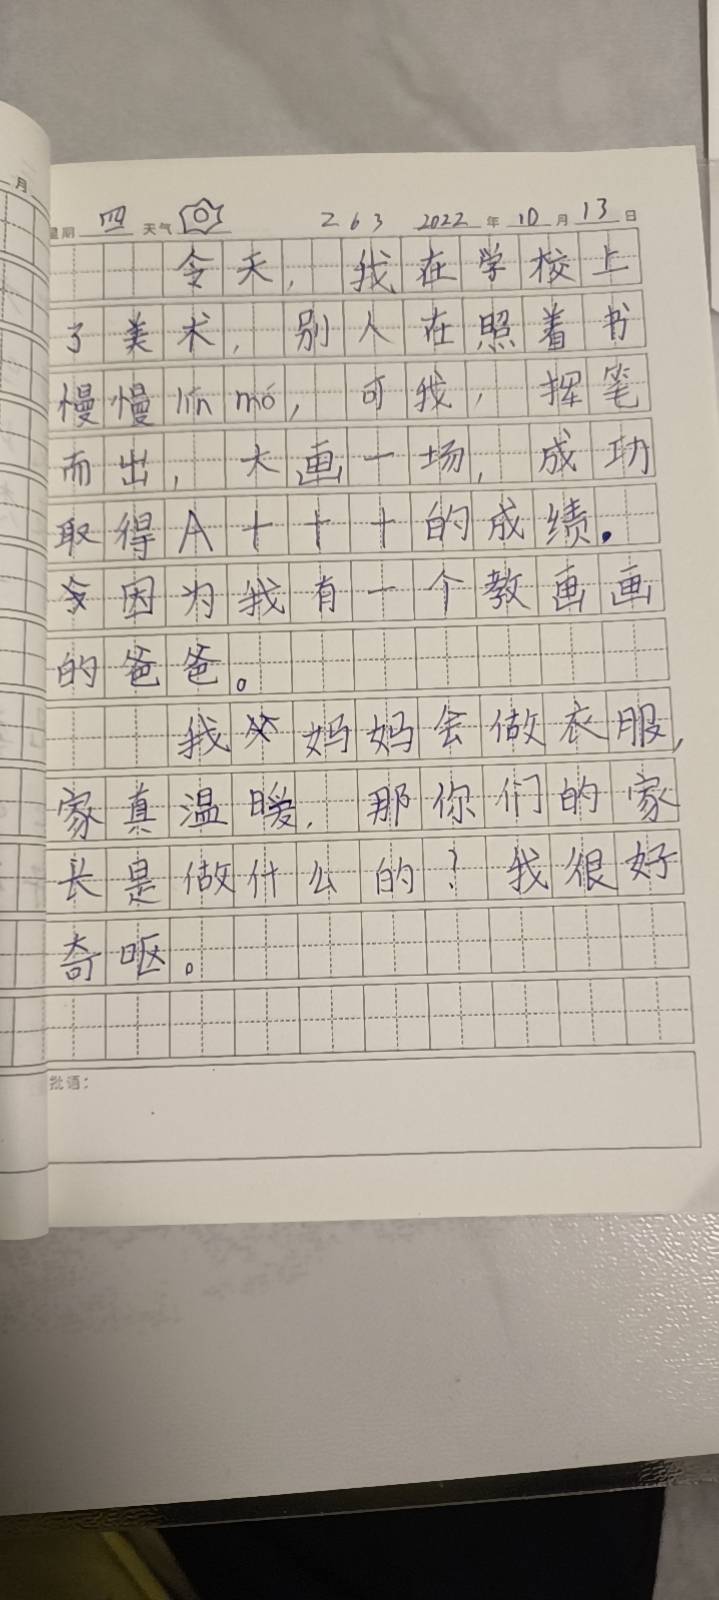 月
星期 四 天气 263 2022 年 10 月 13 日
今天，我在学校上
了美术，别人在照着书
慢慢lín mó，可我，挥笔
而出，大画一场，成功
取得A+++的成绩。
因为我有一个教画画
的爸爸。
我妈妈会做衣服，
家真温暖，那你们的家
长是做什么的？我很好
奇呕。
批语：